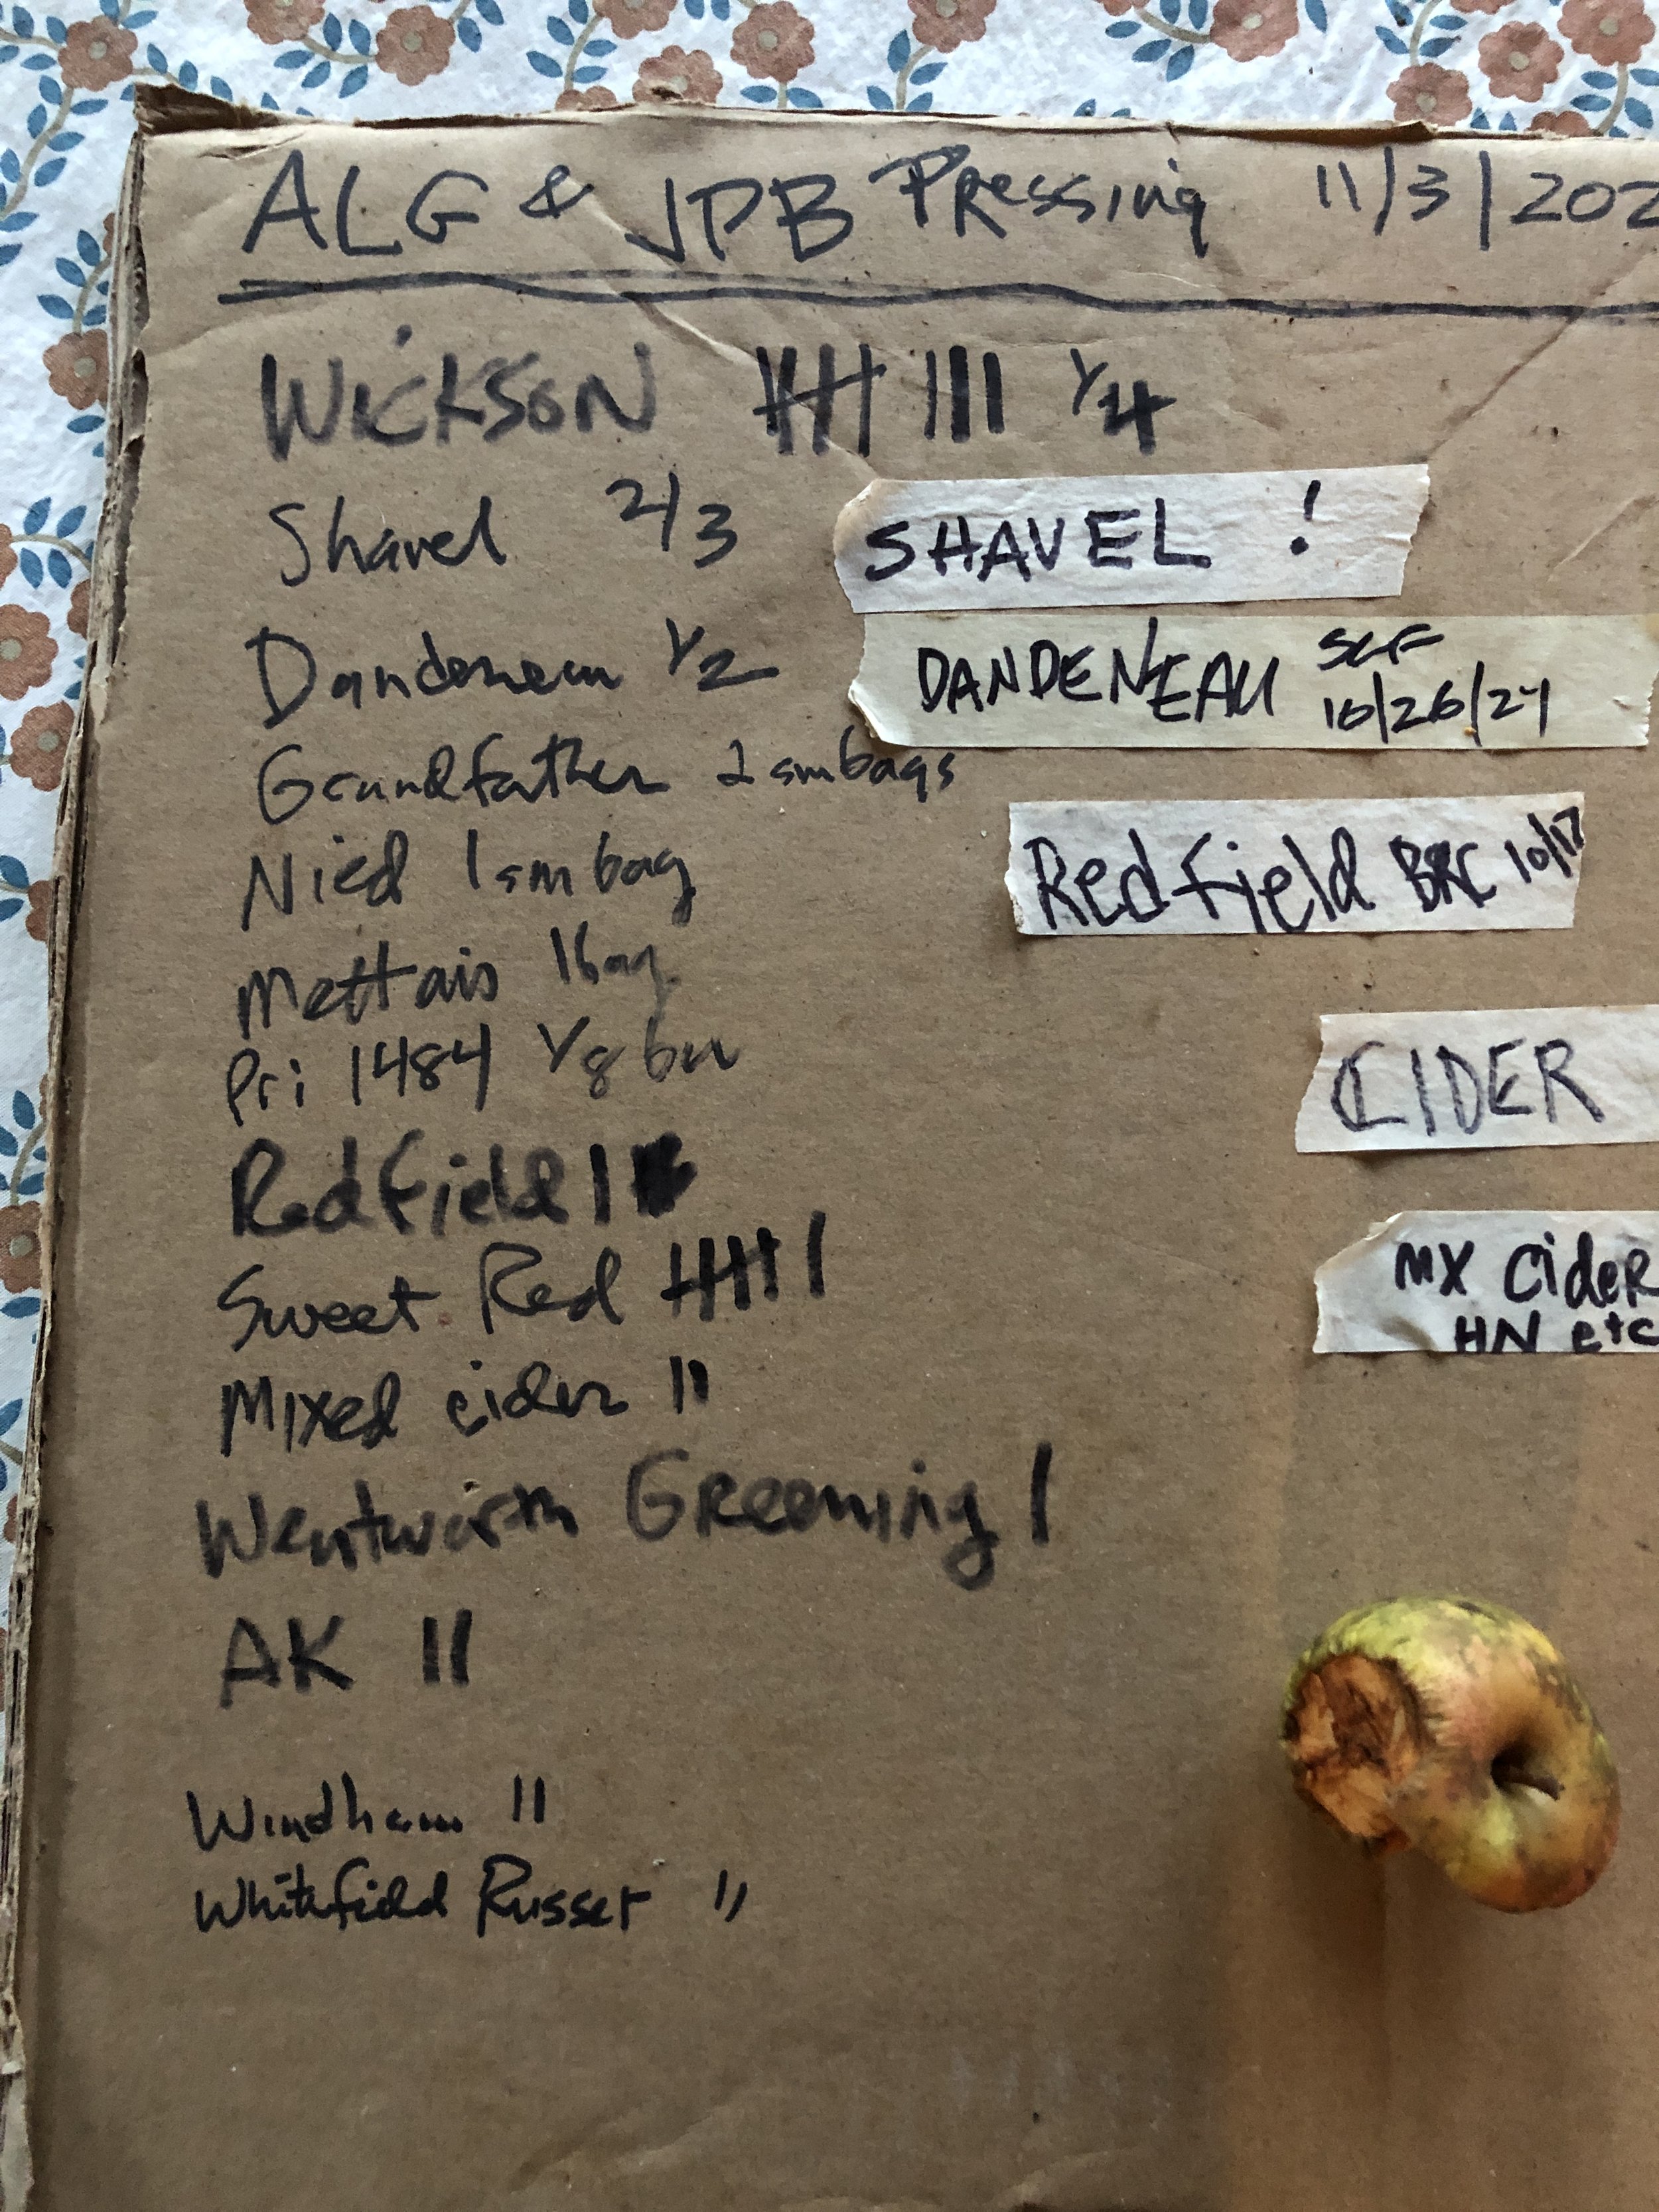 ALG & JPB Pressing 11/3/202
WickSON 𝍸 III 1/4
Shavel 2/3
SHAVEL !
Dandeneau 1/2
DANDENEAU SCF
10/26/24
Grandfather 2 sm bags
Nied 1 sm bag
Redfield BRC 10/17
Mettais 1 bag
Pri 1484 1/8 bu
CIDER
Redfield I
Sweet Red 𝍸 I
MX CideR
HN etc
Mixed cider II
Wentworth Greening I
AK II
Windham II
Whitefield Russet II